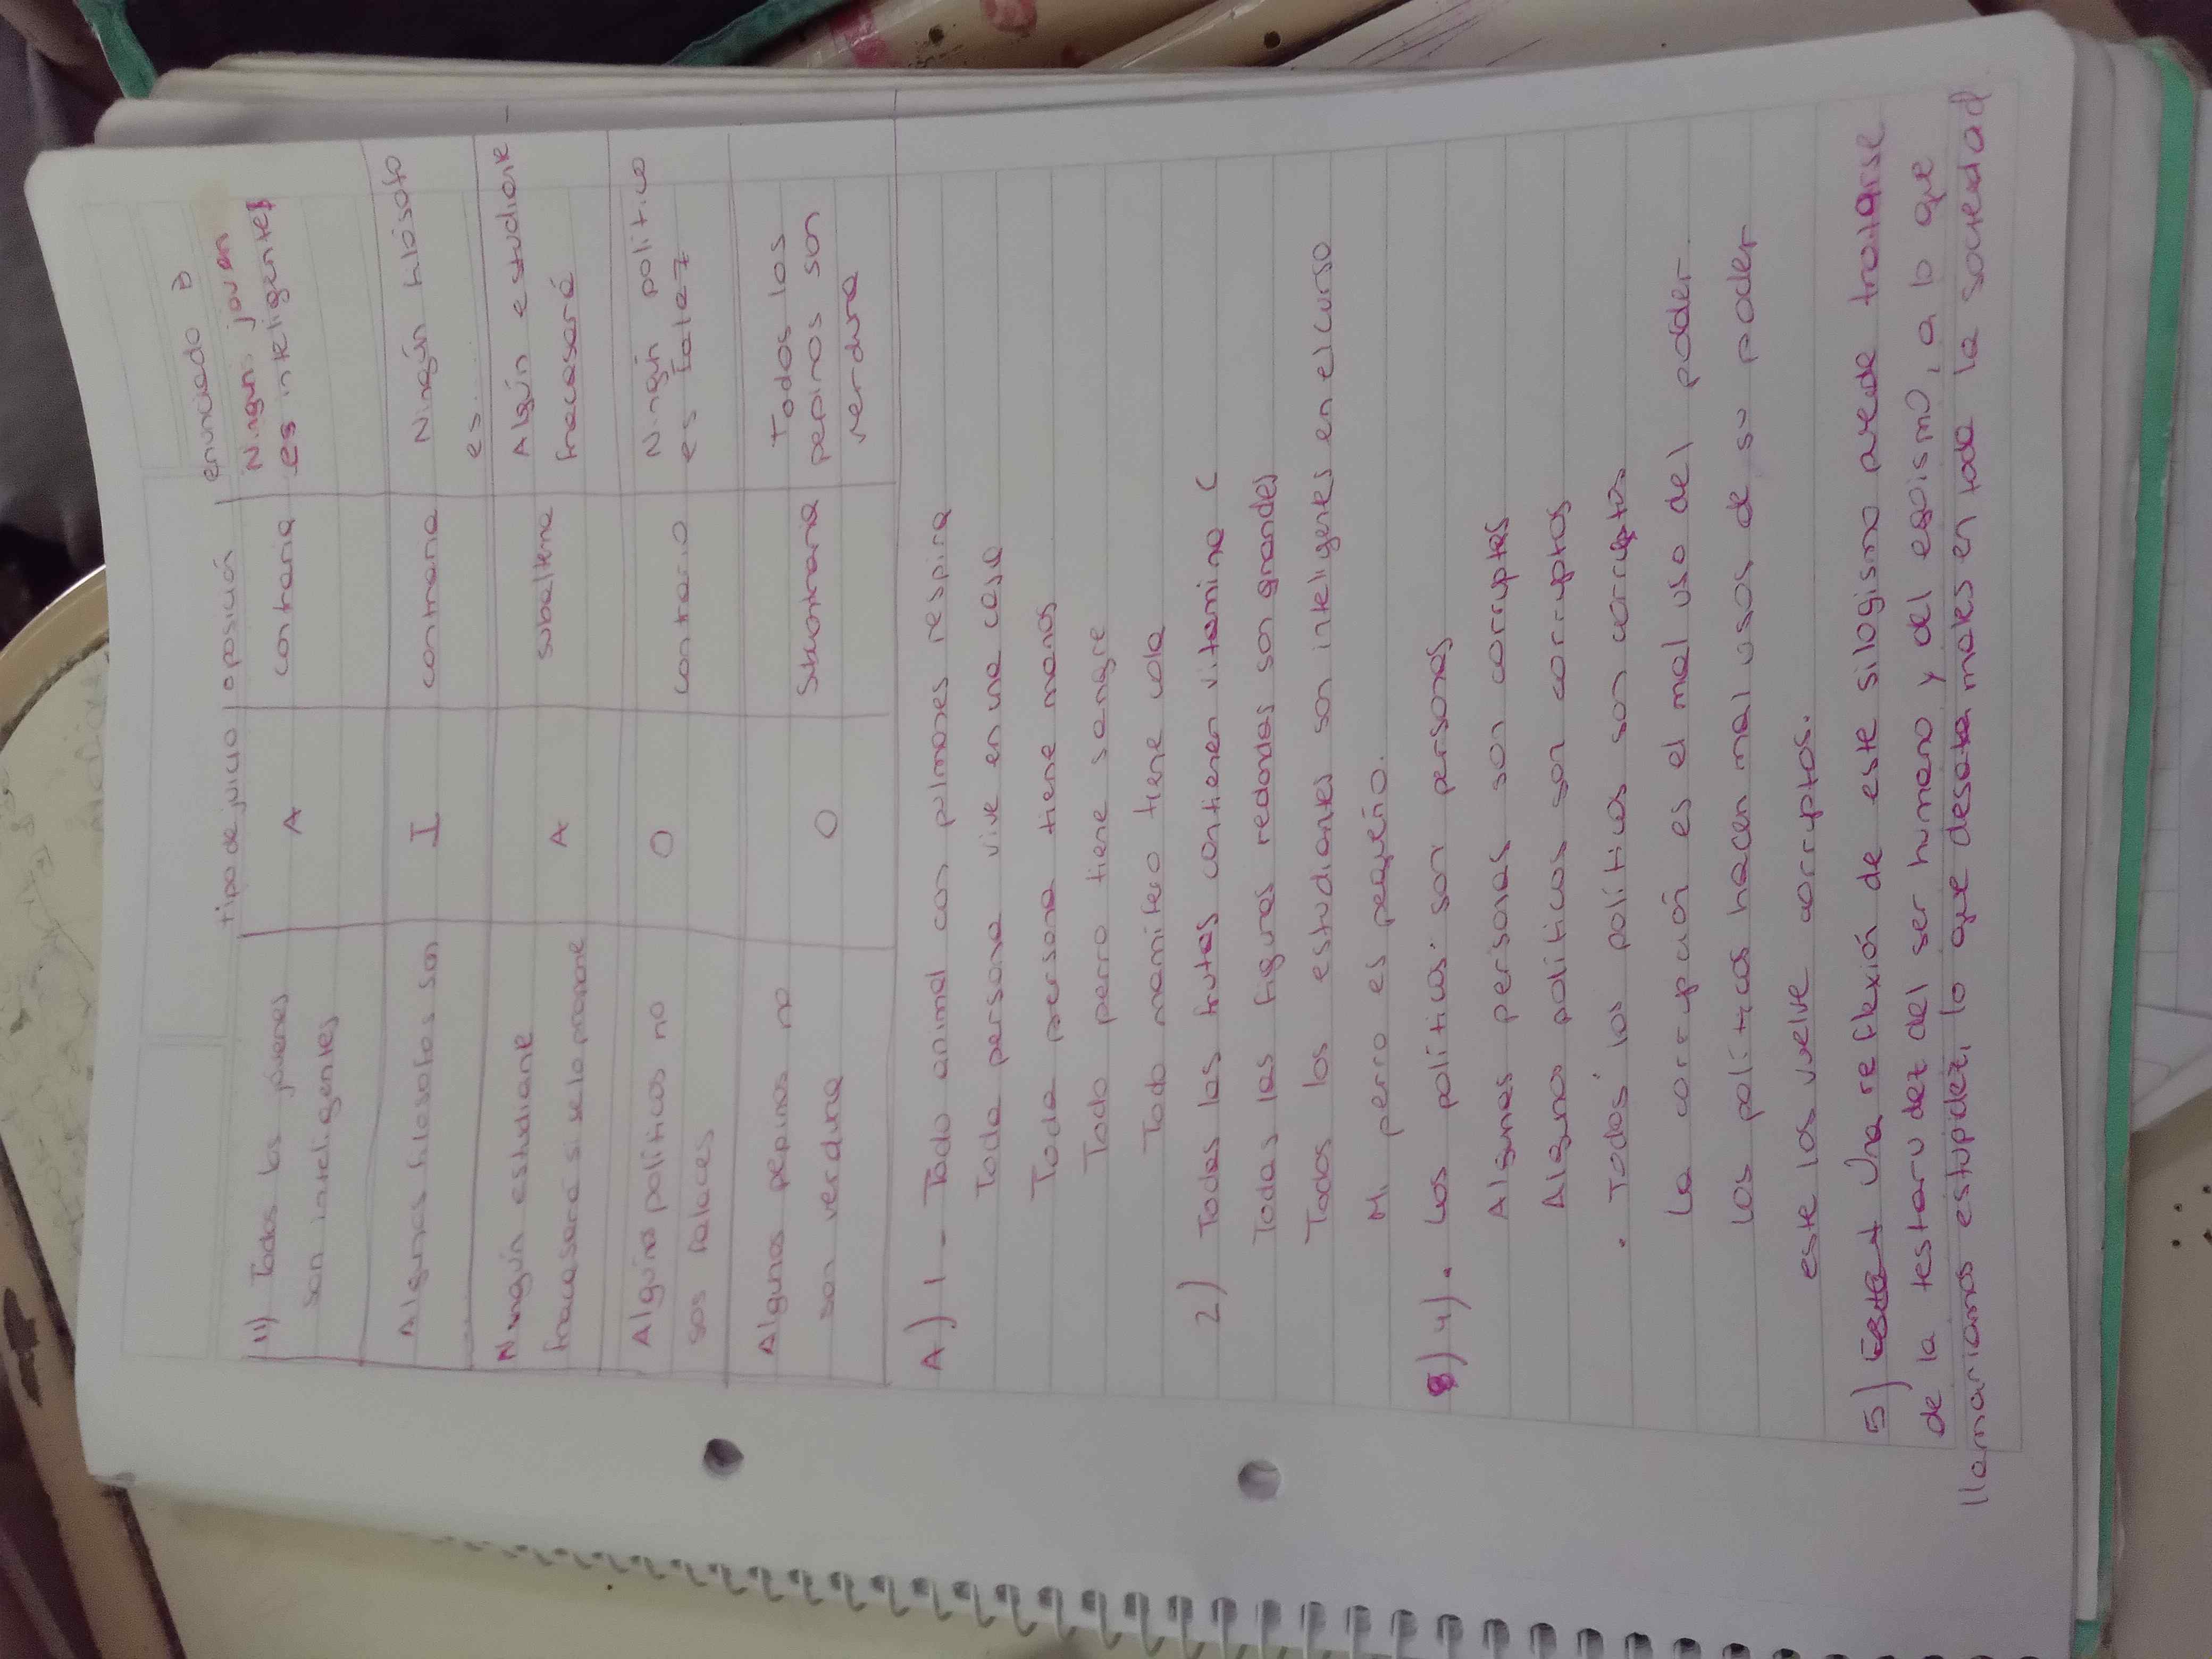 tipo de juicio | oposición | enunciado B
11) Todos los jóvenes son inteligentes | A | contraria | Ningun joven es inteligentes
Algunos filosofos son | I | contraria | Ningún filosofo es...
Ningún estudiante fracasara si se lo propone | A | subalterna | Algún estudiante fracasará
Algúno políticos no sos falaces | O | contrario | Ningún político es falaz
Algunos pepinos no son verdura | O | | Todos los pepinos son verdura
A) 1 - Todo animal con pulmones respira
Toda persona vive en una casa
Toda persona tiene manos
Todo perro tiene sangre
Todo mamífero tiene cola
2) Todas las frutas contienen vitamina C
Todas las figuras redondas son grandes
Todos los estudiantes son inteligentes en el curso
Mi perro es pequeño.
B) 4) • Los políticos son personas
Algunas personas son corruptas
Algunos políticos son corruptos
• Todos los políticos son corruptos
La corrupción es el mal uso del poder
Los políticos hacen mal usos de su poder
este los vuelve corruptos.
5) Una reflexión de este silogismo puede tratarse
de la testarudez del ser humano y del egoismo, a lo que
llamariamos estupidez, lo que desata males en toda la sociedad